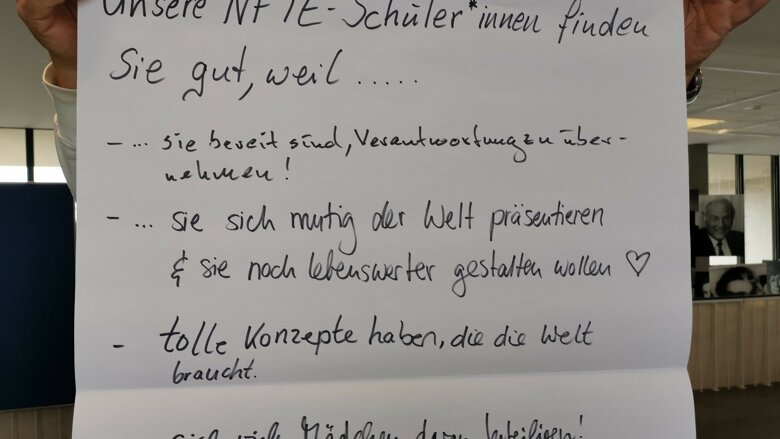 Unsere NFTE-Schüler*innen finden
Sie gut, weil .....
- ... sie bereit sind, Verantwortung zu über-
nehmen!
- ... sie sich mutig der Welt präsentieren
& sie noch lebenswerter gestalten wollen ♡
- tolle Konzepte haben, die die Welt
braucht.
sich viele Mädchen daran beteiligen!